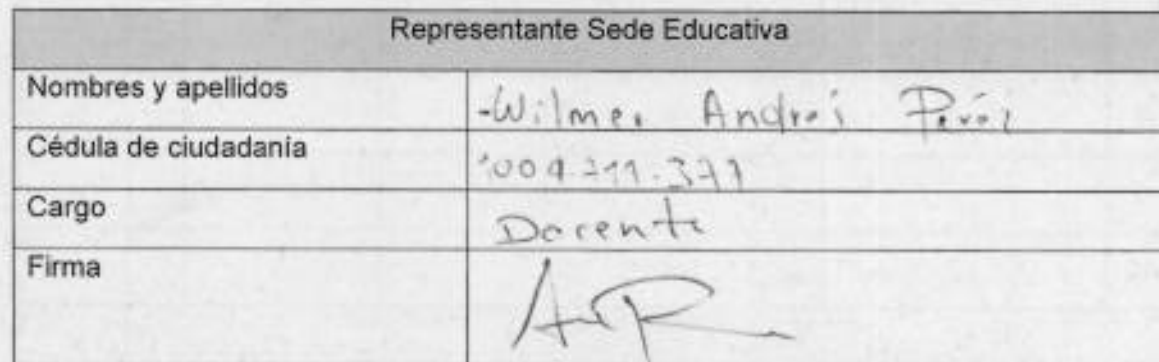 Representante Sede Educativa
Nombres y apellidos
-Wilmer Andrés Pérez
Cédula de ciudadanía
Cargo
Docente
Firma